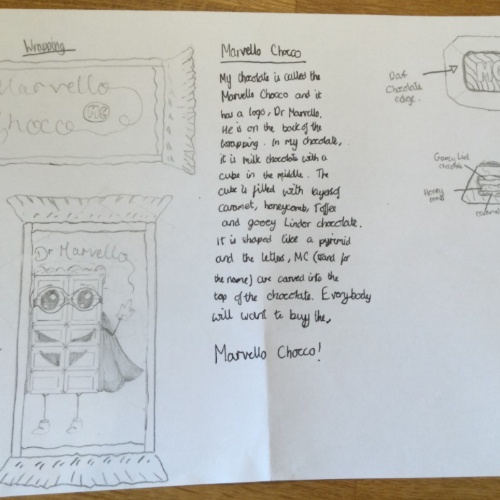 Wrapping
Marvello
Chocco
MC
Dr Marvello
Marvello Chocco
My chocolate is called the
Marvello Chocco and it
has a logo, Dr Marvello.
He is on the back of the
wrapping. In my chocolate,
it is milk chocolate with a
cube in the middle. The
cube is filled with layers of
caramel, honeycomb, Toffee
and gooey Linder chocolate.
It is shaped like a pyrimid
and the letters, MC (stand for
the name) are carved into the
top of the chocolate. Everybody
will want to buy the,
Marvello Chocco!
Dark
Chocolate
edge.
MC
Gooey Lind
chocolate
Honey
comb
caramel